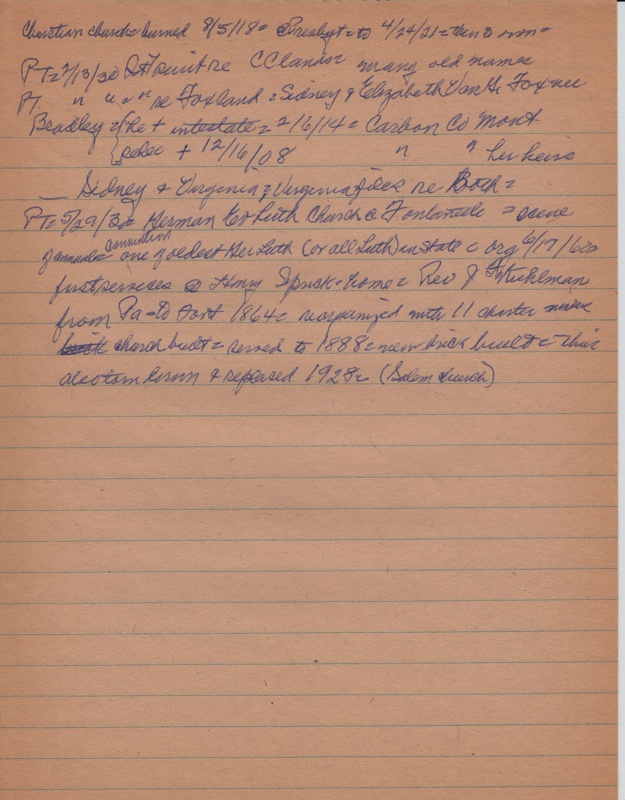 Christian church = burned 8/5/18 = Presbyt = to 4/24/21 = then
PT = 2/13/30 re = many old names
PT " " = " re Foxland = Sidney & Elizabeth Van
Bradley = He + intestate = 2/6/14 = Carbon Co Mont
+ 12/16/08 " " her heirs
— Sidney & Virginia = Virginia re Both =
PT = 5/29/30 = German Ev Luth Church @ Fontanelle = scene
of annual convention one of oldest Ger Luth (or all Luth) in state = org 6/17/60
first services @ Henry Sprick home = Rev J Kuhlman
from Pa = to Font 1864 = reorganized with 11 charter
built church built = served to 1888 = new brick built = this
also torn down & replaced 1928 = (Salem church)